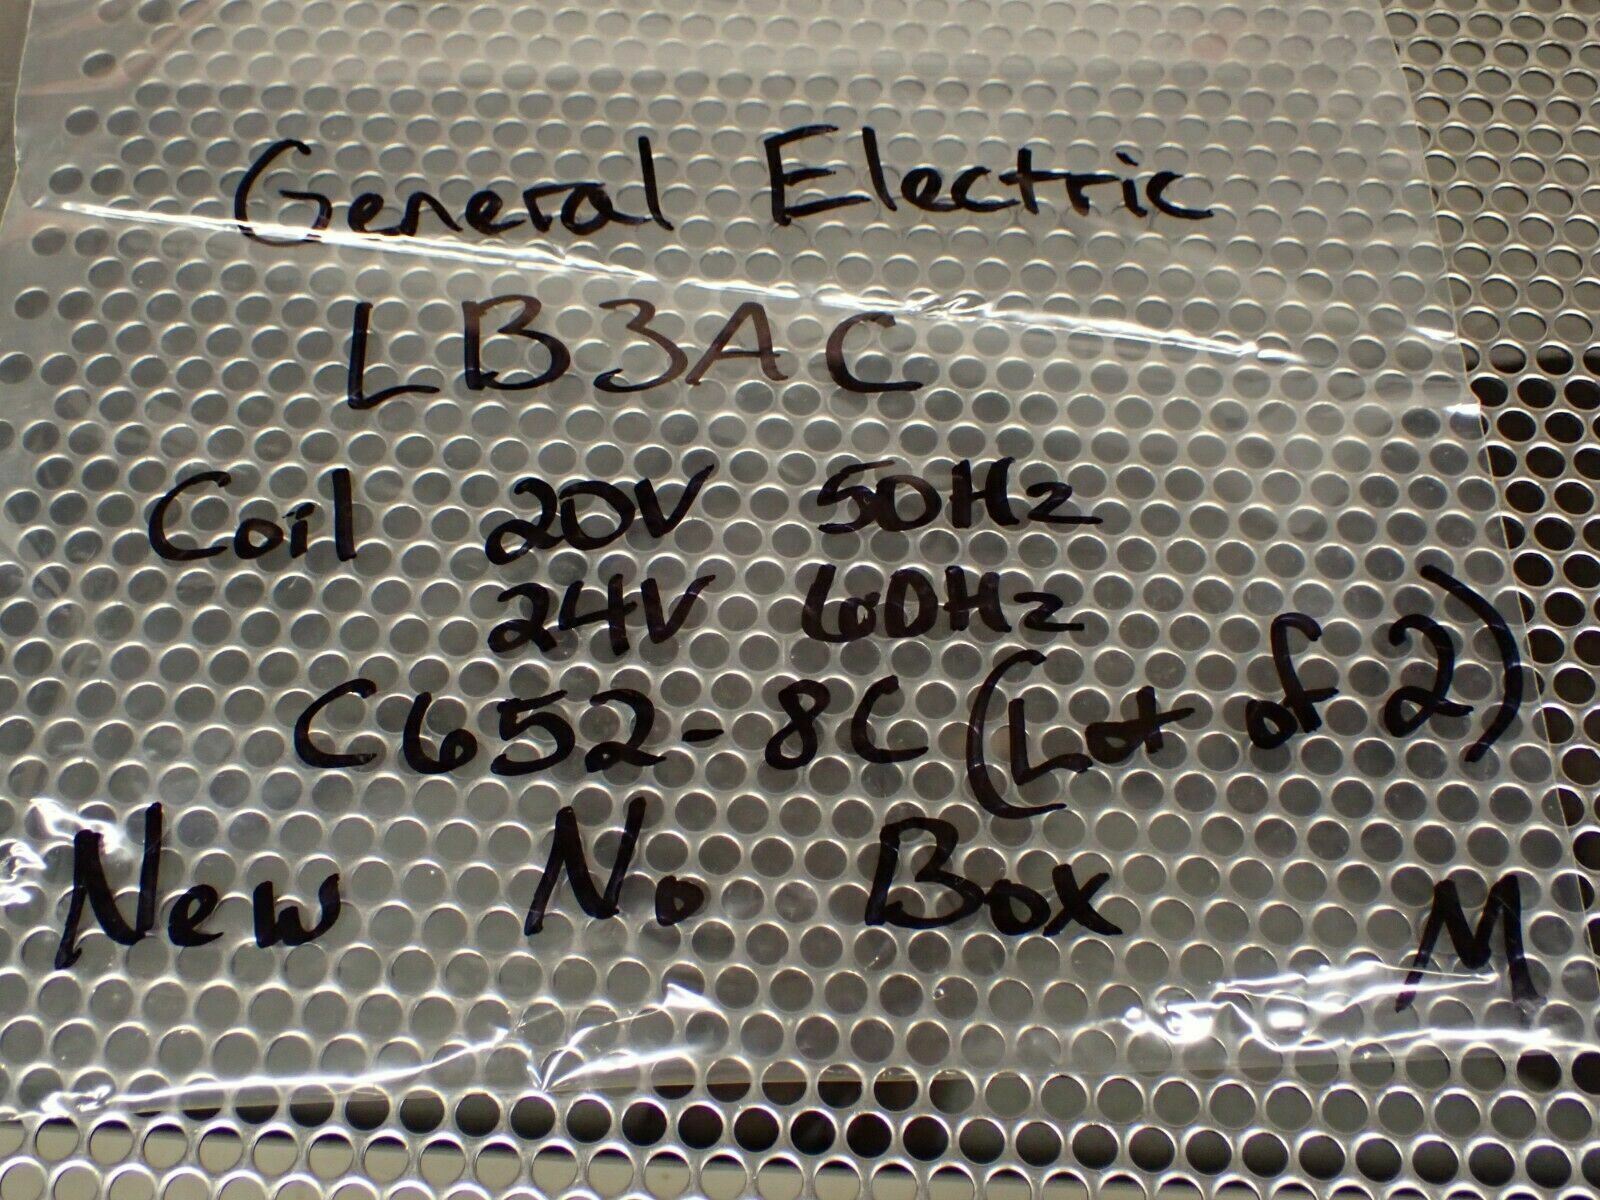 General Electric
LB3AC
Coil 20V 50Hz
24V 60Hz
C652-8C (Lot of 2)
New No Box M